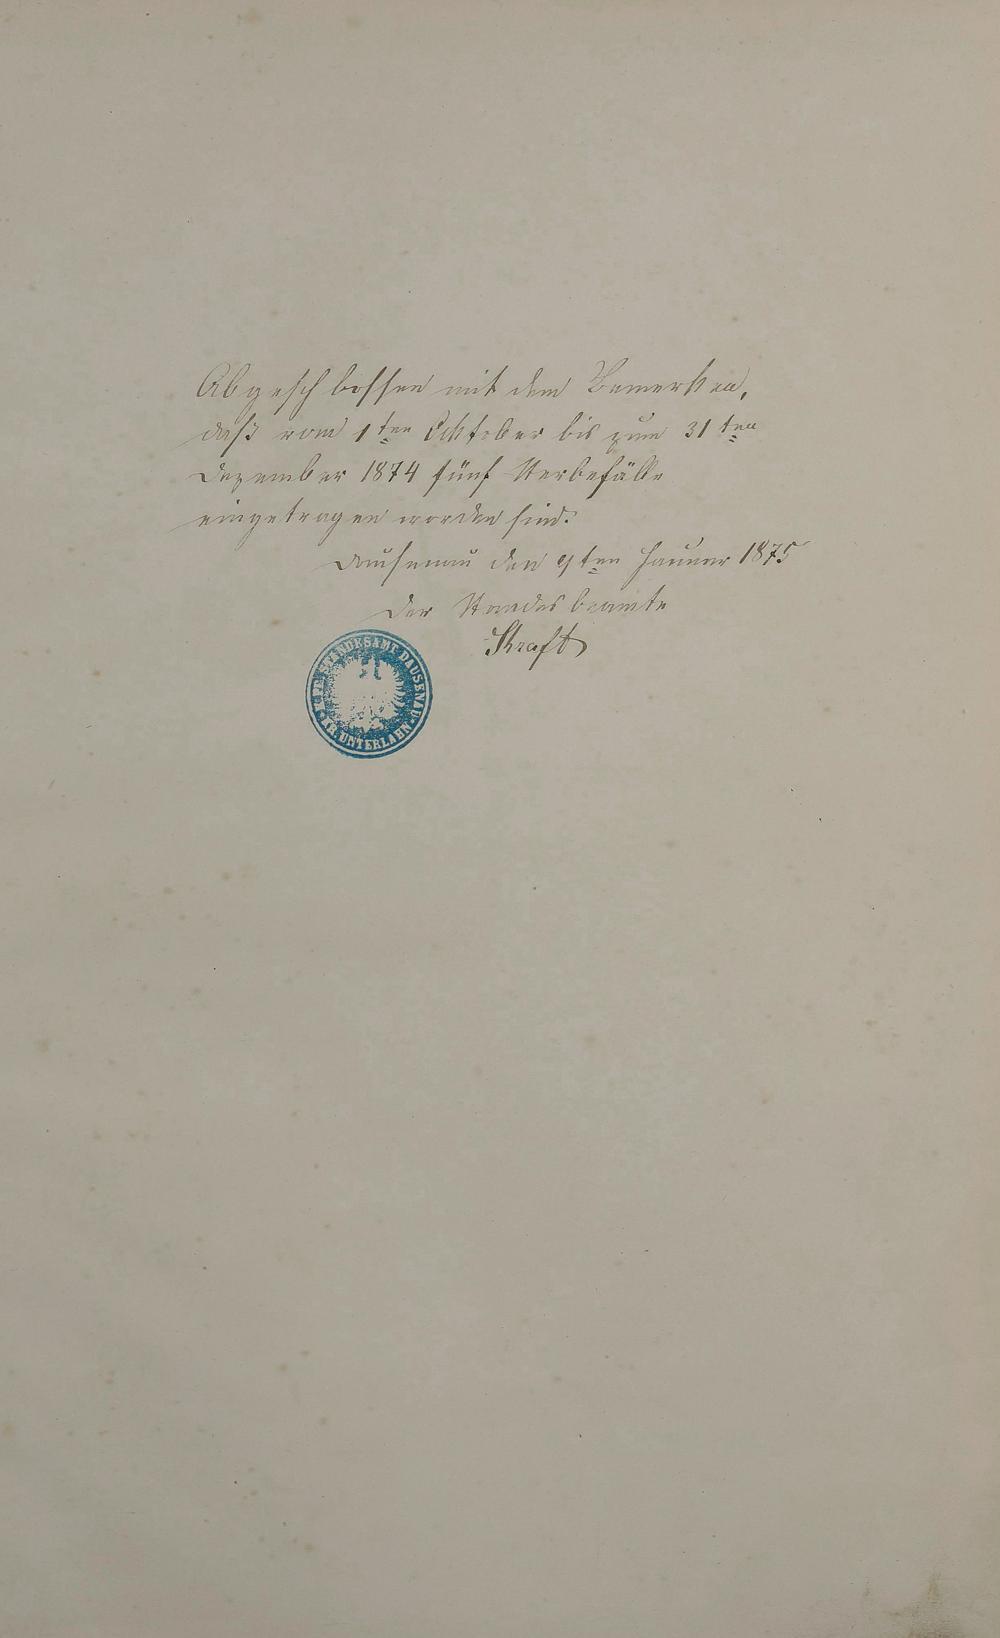 Abgeschlossen mit dem Bemerken,
daß vom 1ten Ocktober bis zum 31ten
Dezember 1874 fünf Sterbefälle
eingetragen worden sind.
Dausenau den 9ten Januar 1875
Der Standesbeamte
Kraft
STANDESAMT DAUSENAU
KR. UNTERLAHN